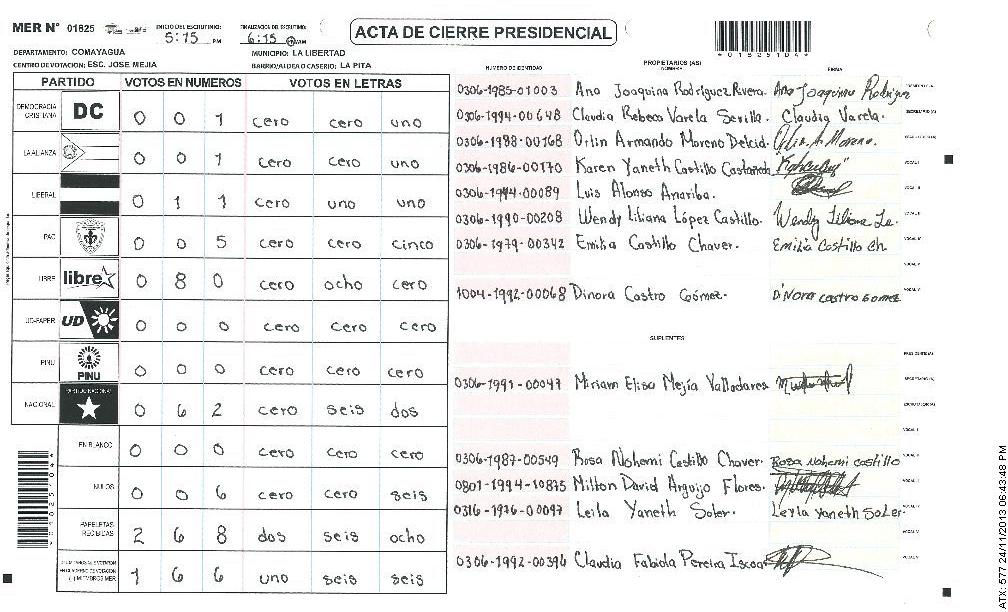 MER N° 01825 INICIO DEL ESCRUTINIO: 5:15 PM FINALIZACION DEL ESCRUTINIO: 6:15 AM
ACTA DE CIERRE PRESIDENCIAL
DEPARTAMENTO: COMAYAGUA MUNICIPIO: LA LIBERTAD
CENTRO DE VOTACION: ESC. JOSE MEJIA BARRIO/ALDEA O CASERIO: LA PITA
PARTIDO VOTOS EN NUMEROS VOTOS EN LETRAS
DEMOCRACIA CRISTIANA DC 0 0 1 cero cero uno
LA ALIANZA 0 0 1 cero cero uno
LIBERAL 0 1 1 cero uno uno
PAC 0 0 5 cero cero cinco
LIBRE libre 0 8 0 cero ocho cero
UD-FAPER UD 0 0 0 cero cero cero
PINU PINU 0 0 0 cero cero cero
NACIONAL PARTIDO NACIONAL 0 6 2 cero seis dos
EN BLANCO 0 0 0 cero cero cero
NULOS 0 0 6 cero cero seis
PAPELETAS RECIBIDAS 2 6 8 dos seis ocho
1 6 6 uno seis seis
NUMERO DE IDENTIDAD PROPIETARIOS (AS) NOMBRE FIRMA
0306-1985-01003 Ana Joaquina Rodríguez Rivera. Ana Joaquina Rodriguez
0306-1994-00648 Claudia Rebeca Varela Sevilla. Claudia Varela.
0306-1988-00168 Orlin Armando Moreno Delcid. Orlin A. Moreno.
0306-1986-00170 Karen Yaneth Castillo Castañeda
0306-1944-00089 Luis Alonso Anariba.
0306-1990-00208 Wendy Liliana López Castillo. Wendy Liliana Lo.
0306-1979-00342 Emilia Castillo Chaver. Emilia Castillo Ch
1004-1992-00068 Dinora Castro Gómez. Dinora castro Gomez
SUPLENTES
0306-1991-00047 Miriam Elisa Mejía Valladares
0306-1987-00549 Rosa Nohemi Castillo Chaver. Rosa Nohemi castillo
0801-1994-10875 Milton David Argujo Flores.
0316-1976-00097 Leila Yaneth Soler. Leyla Yaneth Soler.
0306-1992-00396 Claudia Fabiola Pereira Iscoa
ATX: 577.24/11/2013 06:43:48 PM